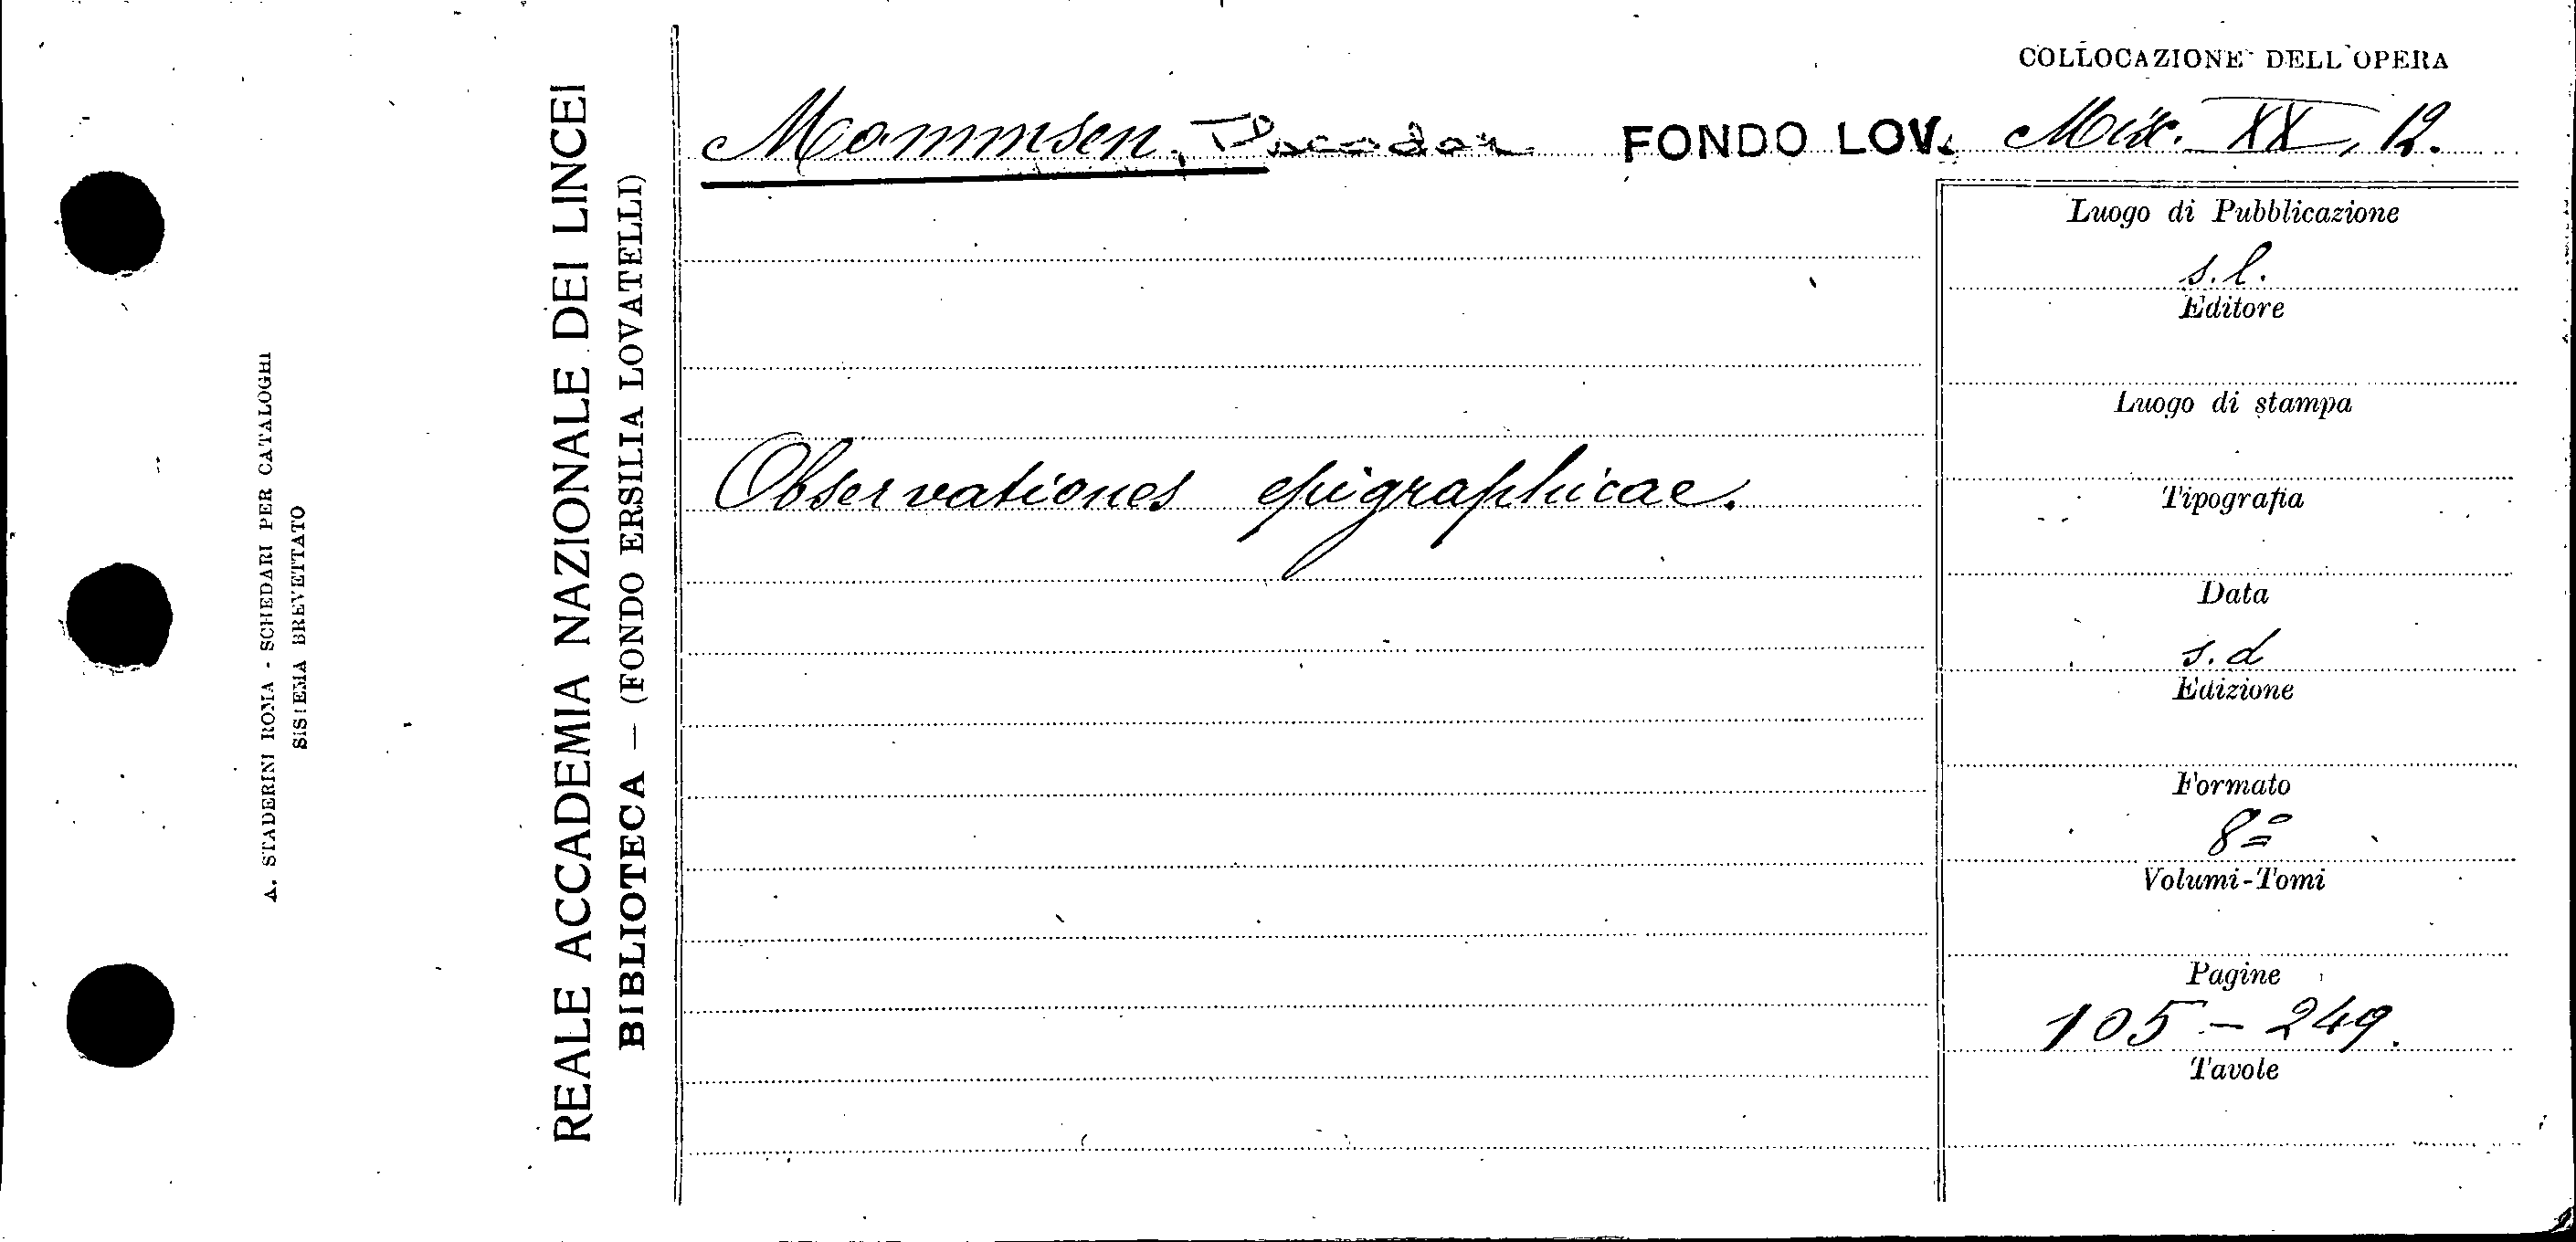 COLLOCAZIONE DELL'OPERA
Mommsen, Theodor FONDO LOV. Mix. XX, 12.
Observationes epigraphicae.
Luogo di Pubblicazione
s. l.
Editore
Luogo di stampa
Tipografia
Data
s. d
Edizione
Formato
8º
Volumi-Tomi
Pagine
105 - 249.
Tavole
REALE ACCADEMIA NAZIONALE DEI LINCEI
BIBLIOTECA — (FONDO ERSILIA LOVATELLI)
A. STADERINI ROMA - SCHEDARI PER CATALOGHI
SISTEMA BREVETTATO